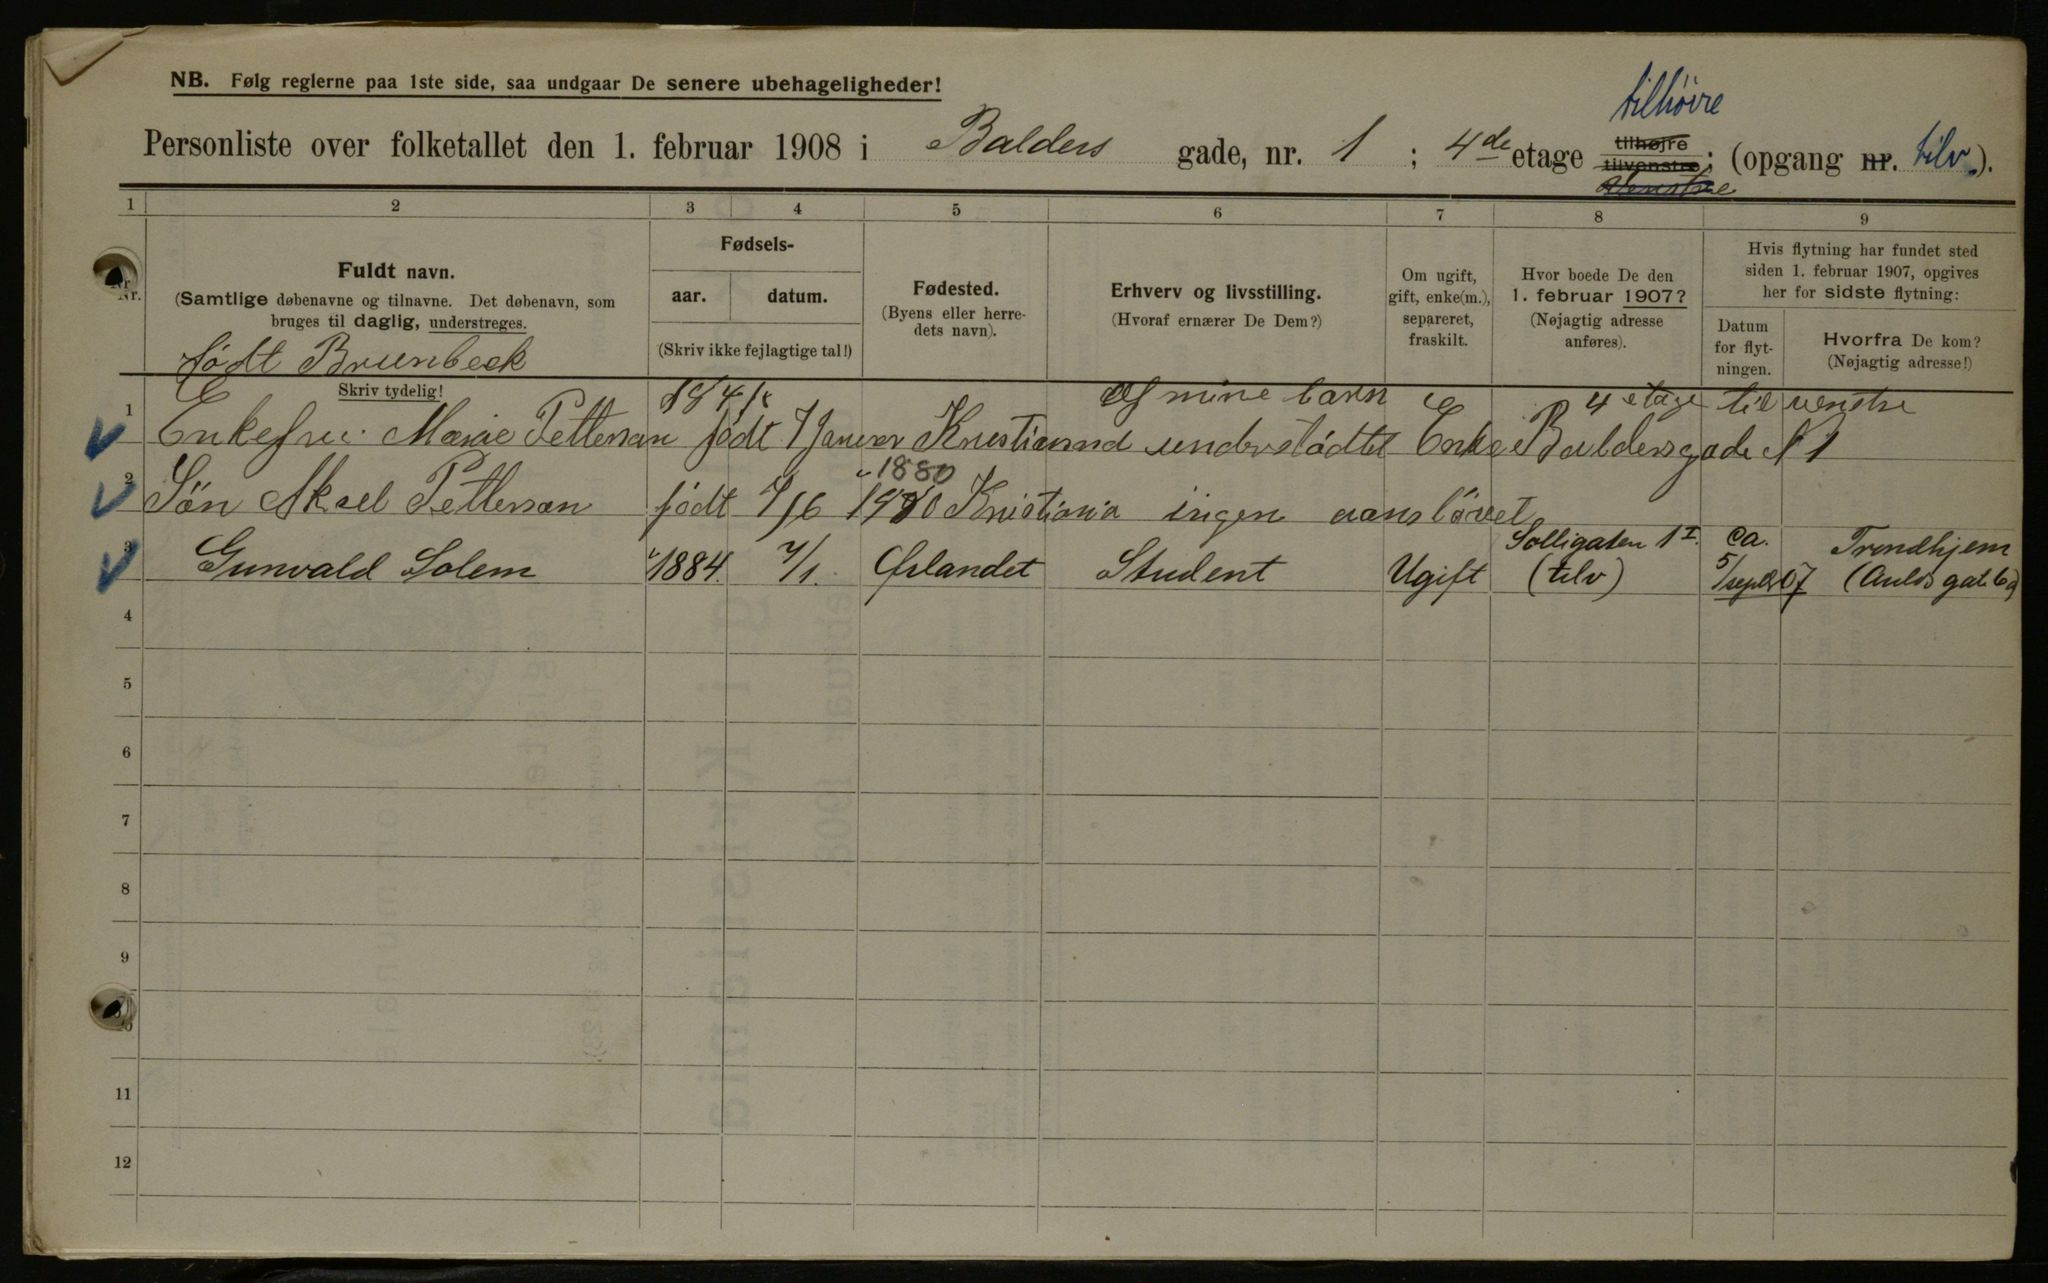 NB. Følg reglerne paa 1ste side, saa undgaar De senere ubehageligheder!
tilhöire
Personliste over folketallet den 1. februar 1908 i Balders gade, nr. 1 ; 4de etage tilhøjre tilvenstre venstre ; (opgang nr. tilv.).
1 2 3 4 5 6 7 8 9
Nr.
Fuldt navn.
(Samtlige døbenavne og tilnavne. Det døbenavn, som
bruges til daglig, understreges.
født Brunbeck
Skriv tydelig!
Fødsels-
aar. datum.
(Skriv ikke fejlagtige tal!)
Fødested.
(Byens eller herre-
dets navn).
Erhverv og livsstilling.
(Hvoraf ernærer De Dem?)
Om ugift,
gift, enke(m.),
separeret,
fraskilt.
Hvor boede De den
1. februar 1907?
(Nøjagtig adresse
anføres).
Hvis flytning har fundet sted
siden 1. februar 1907, opgives
her for sidste flytning:
Datum
for flyt-
ningen.
Hvorfra De kom?
(Nøjagtig adresse!)
af mine barn 4 etage til venstre
1 Enkefru. Marie Petterson født 7 Januar Kristiansand understødtet Enke Baldersgade N 1
1880
2 Sön Aksel Petterson født 4/6 Kristiania ingen
Solligaten 1 I. ca. Trondhjem
3 Gunvald Solem 1884. 7/1. Ørlandet Student Ugift (tilv) 5/sept 07
4
5
6
7
8
9
10
11
12